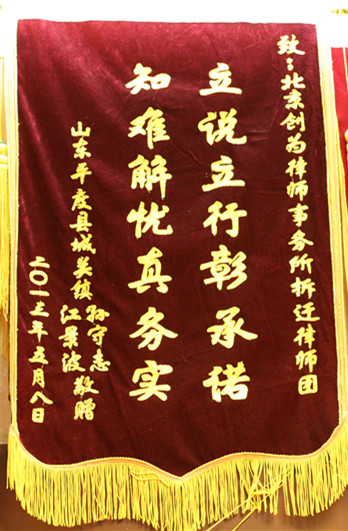 致：北京创为律师事务所拆迁律师团
立说立行彰承诺
知难解忧真务实
山东平度县城关镇 孙守志
江景波 敬赠
二〇一三年五月八日